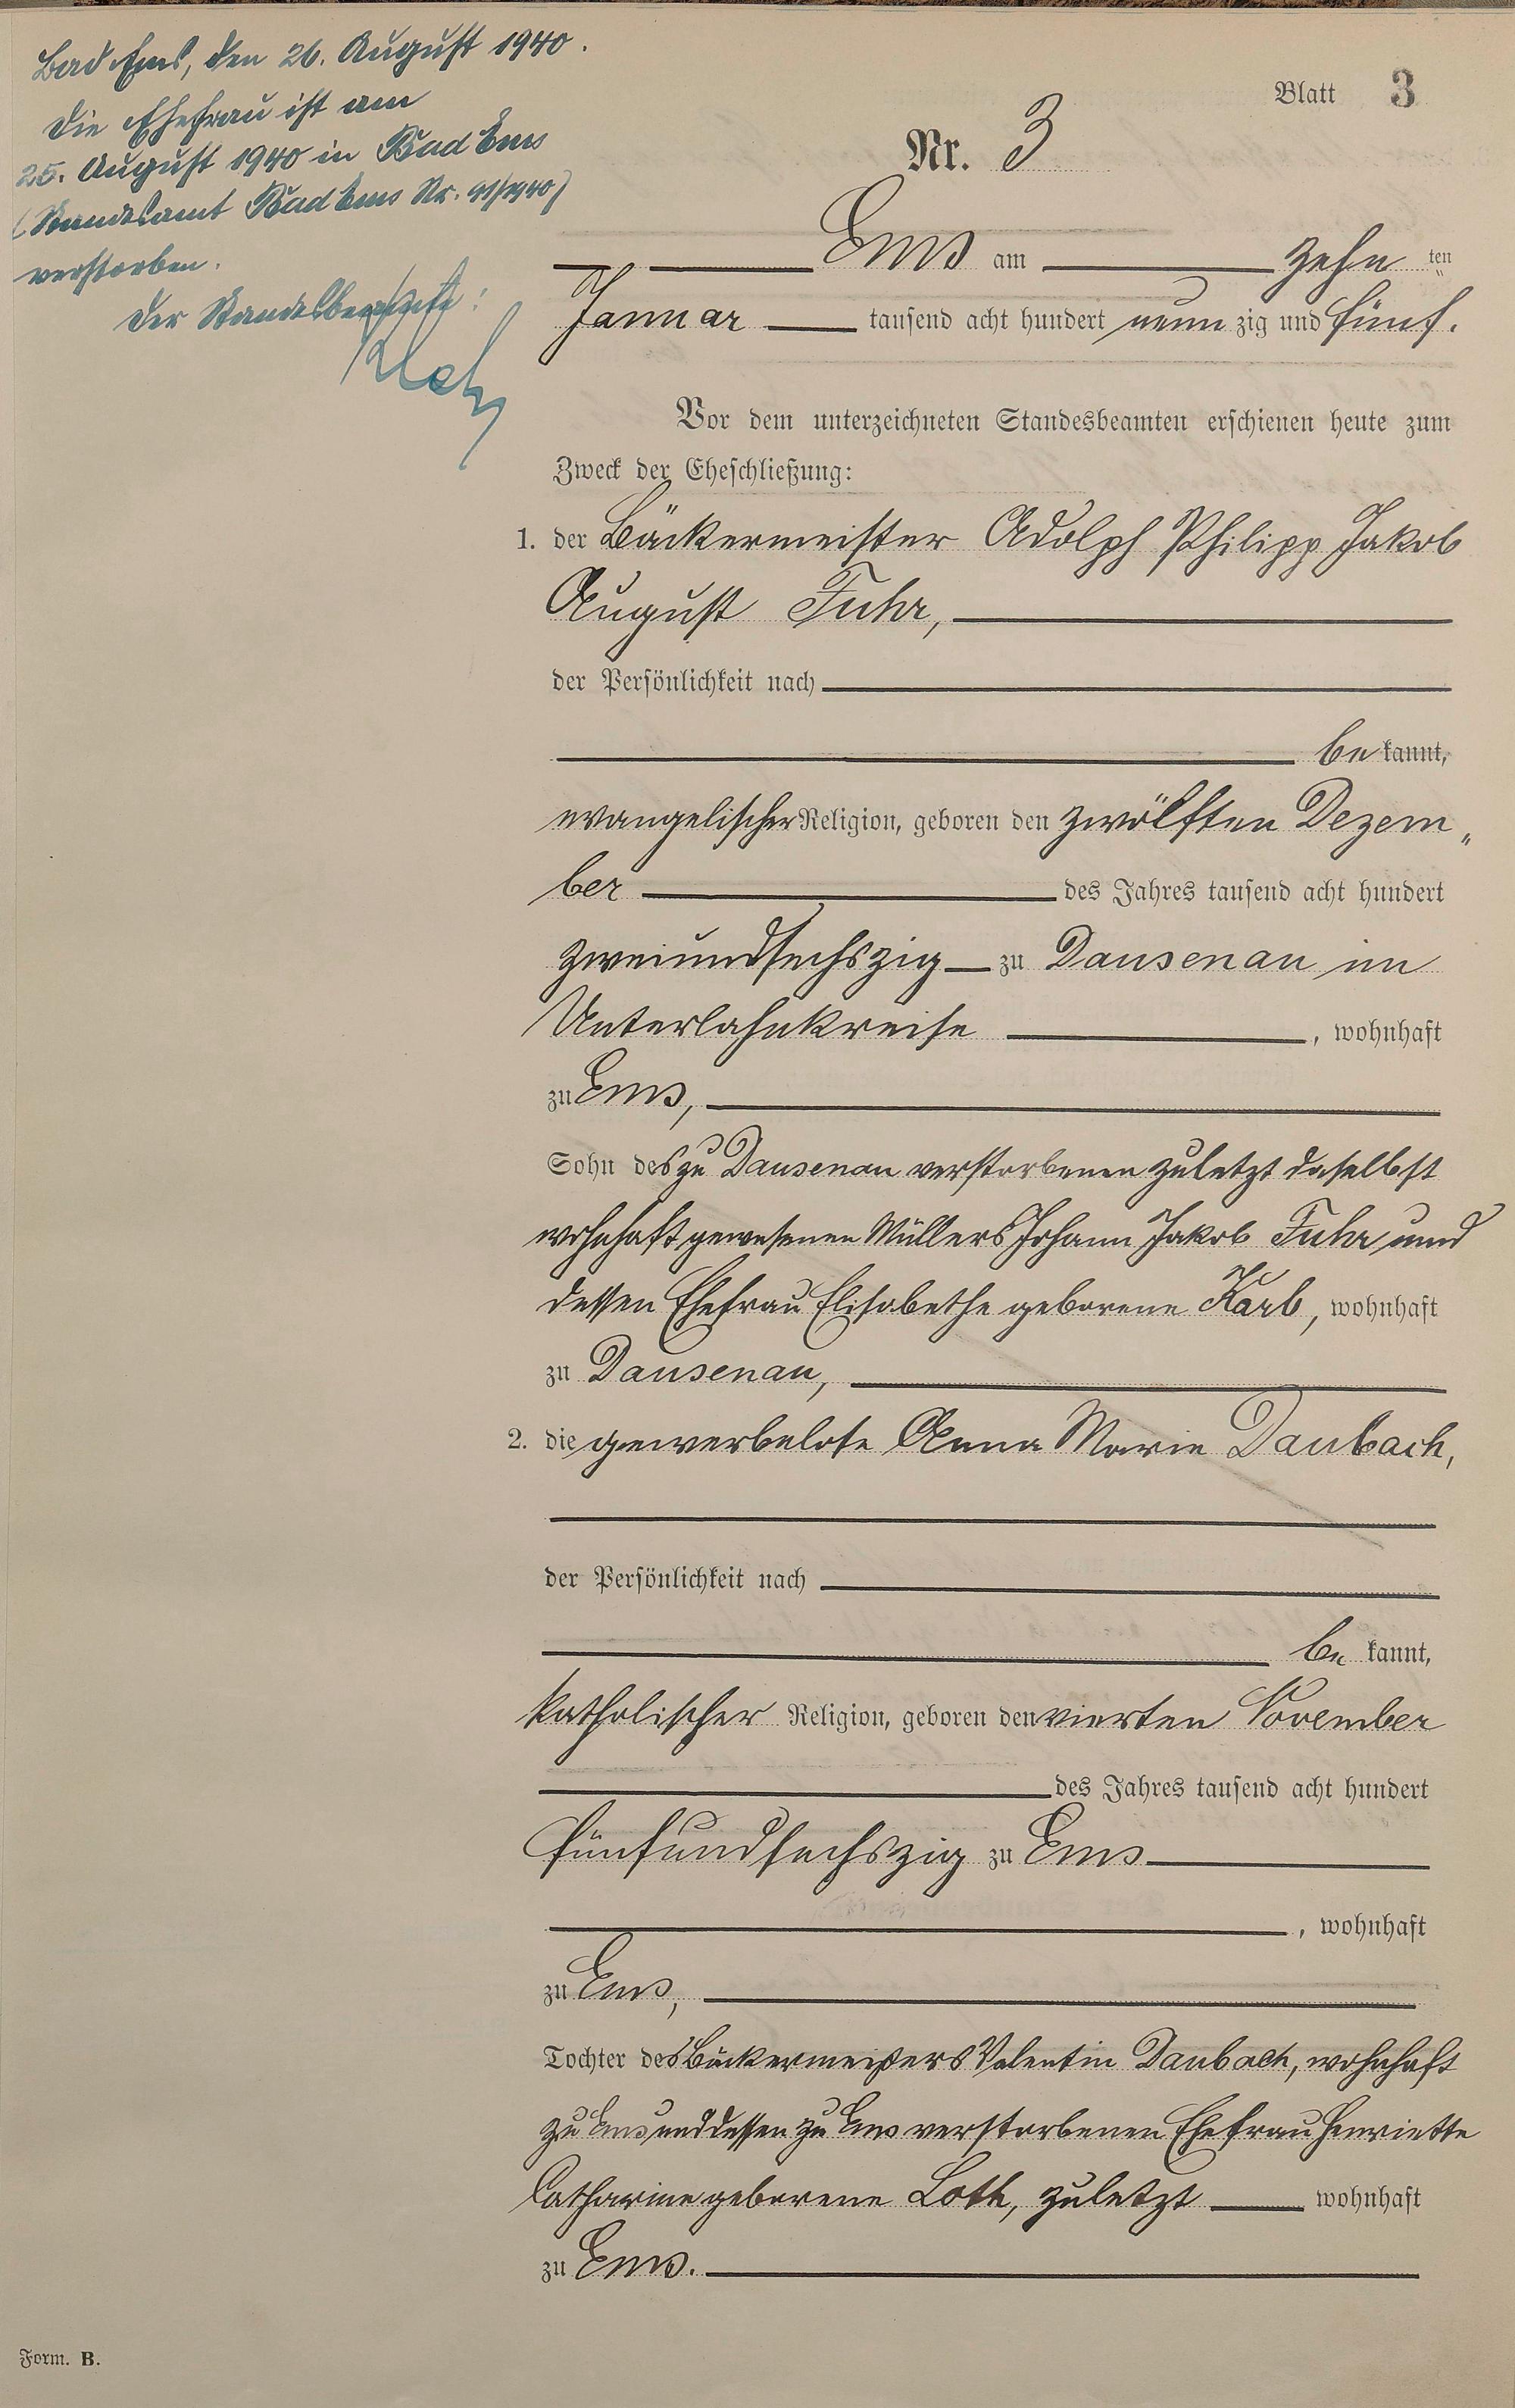 Bad Ems, den 26. August 1940.
Die Ehefrau ist am
25. August 1940 in Bad Ems
(Standesamt Bad Ems Nr. 91/1940)
verstorben.
Der Standesbeamte:
Blatt 3
Nr. 3
Ems am zehn ten
Januar tausend acht hundert neun zig und fünf.
Vor dem unterzeichneten Standesbeamten erschienen heute zum
Zweck der Eheschließung:
1. der Bäckermeister Adolph Philipp Jakob
August Fuhr,
der Persönlichkeit nach
be kannt,
evangelischer Religion, geboren den zwölften Dezem„
ber des Jahres tausend acht hundert
zweiundsechszig zu Dausenau im
Unterlahnkreise, wohnhaft
zu Ems,
Sohn des zu Dausenau verstorbenen zuletzt daselbst
wohnhaft gewesenen Müllers Johann Jakob Fuhr und
dessen Ehefrau Elisabethe geborene Karb, wohnhaft
zu Dausenau,
2. die gewerbelose Anna Marie Daubach,
der Persönlichkeit nach
be kannt,
katholischer Religion, geboren den vierten November
des Jahres tausend acht hundert
fünfundsechszig zu Ems
, wohnhaft
zu Ems,
Tochter des Bäckermeisters Valentin Daubach, wohnhaft
zu Ems und dessen zu Ems verstorbenen Ehefrau Henriette
Catharine geborene Loth, zuletzt wohnhaft
zu Ems.
Form. B.